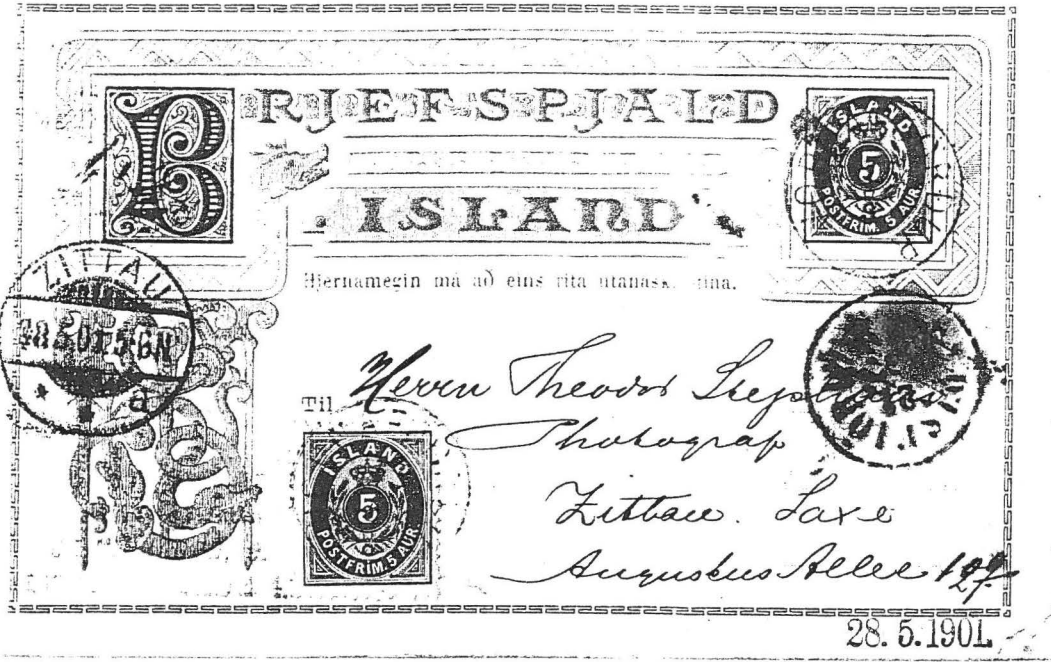 BRJEFSPJALD
ÍSLAND
5
POSTFRIM. 5 AUR
ÍSLAND
Hjernamegin má að eins rita utanásk
ZITTAU
5-6N
d
Til
Herrn Theodor
Photograf
Zittau. Saxe
Augustus Allee
ÍSLAND
5
POSTFRIM. 5 AUR
28.5.1901.